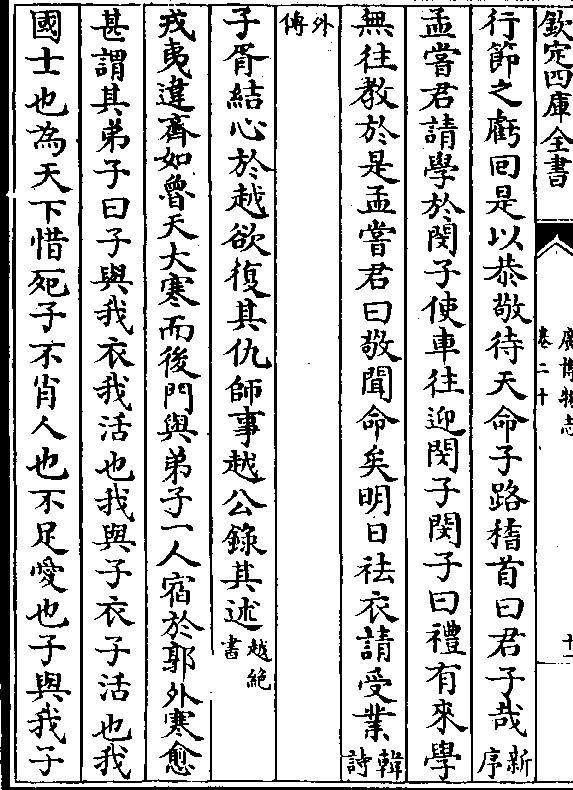 欽定四庫全書
廣博物志
卷二十
十一
行節之虧回是以恭敬待天命子路稽首曰君子哉新序
孟嘗君請學於閔子使車往迎閔子閔子曰禮有來學
無往教於是孟嘗君曰敬聞命矣明日袪衣請受業韓詩
外傳
子胥結心於越欲復其仇師事越公錄其述越絕書
戎夷違齊如魯天大寒而後門與弟子一人宿於郭外寒愈
甚謂其弟子曰子與我衣我活也我與子衣子活也我
國士也為天下惜死子不肖人也不足愛也子與我子